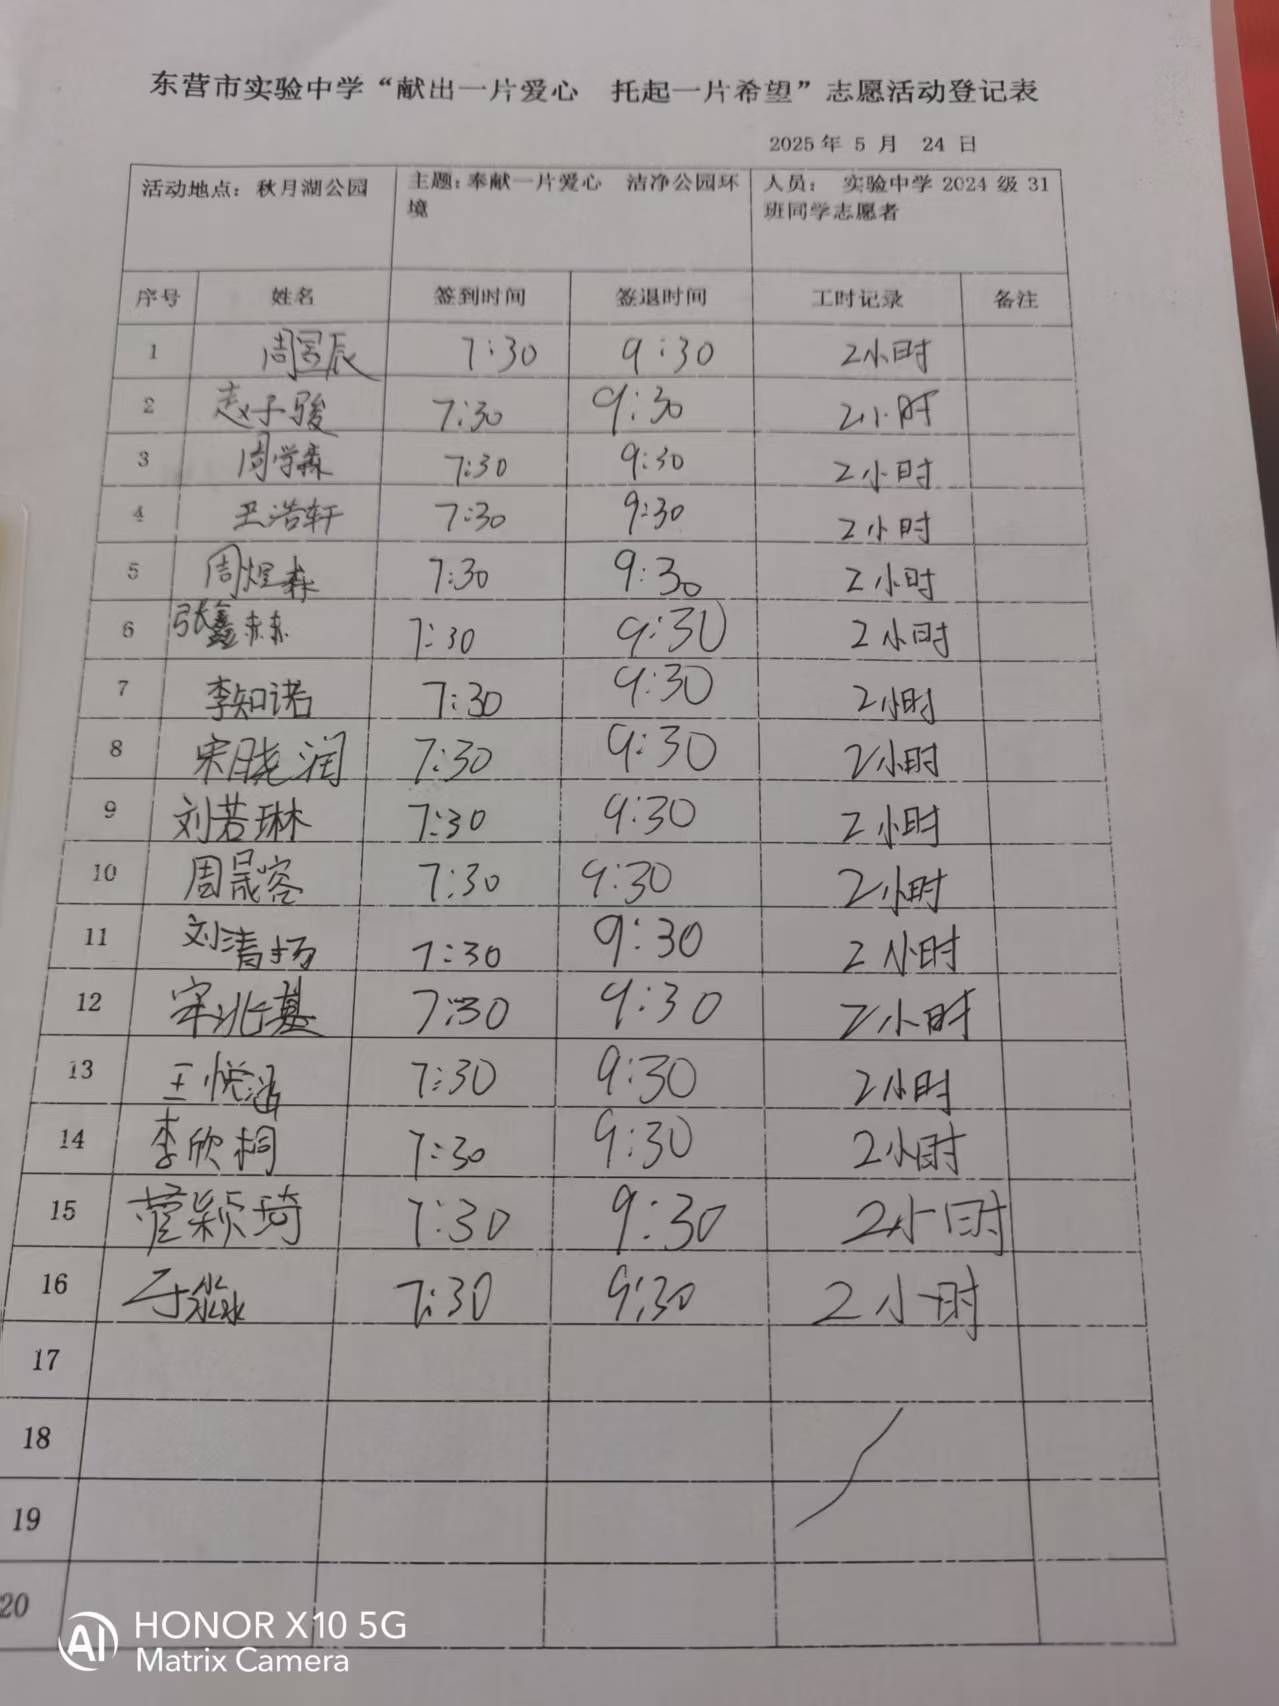 东营市实验中学“献出一片爱心 托起一片希望”志愿活动登记表
2025年 5 月 24 日
活动地点：秋月湖公园 主题：奉献一片爱心 洁净公园环境 人员： 实验中学 2024 级 31 班同学志愿者
序号 姓名 签到时间 签退时间 工时记录 备注
1 周昱辰 7:30 9:30 2小时
2 赵子骏 7:30 9:30 2小时
3 周学森 7:30 9:30 2小时
4 王浩轩 7:30 9:30 2小时
5 周煜森 7:30 9:30 2小时
6 张鑫赫 7:30 9:30 2小时
7 李知诺 7:30 9:30 2小时
8 宋晓润 7:30 9:30 2小时
9 刘若琳 7:30 9:30 2小时
10 周晟容 7:30 9:30 2小时
11 刘清扬 7:30 9:30 2小时
12 宋兆基 7:30 9:30 2小时
13 王悦涵 7:30 9:30 2小时
14 李欣桐 7:30 9:30 2小时
15 菅颖琦 7:30 9:30 2小时
16 于淼 7:30 9:30 2小时
17
18
19
20
HONOR X10 5G
Matrix Camera
AI